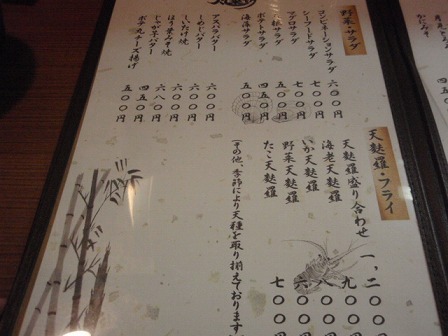 野菜・サラダ
コンビネーションサラダ 六〇〇円
シーフードサラダ 七〇〇円
マグロサラダ 七〇〇円
大根サラダ 五〇〇円
ポテトサラダ 四五〇円
海藻サラダ 五〇〇円
アスパラバター 六〇〇円
しめじバター
しいたけ焼
ほり葉みそ焼
じゃが芋バター 四五〇円
ポテ丸チーズ揚げ 五〇〇円
天麩羅・フライ
天麩羅盛り合わせ 一、二〇
海老天麩羅 九〇
いか天麩羅 八〇
野菜天麩羅 六〇
たこ天麩羅 七〇
(その他、季節により天種を取り揃えております